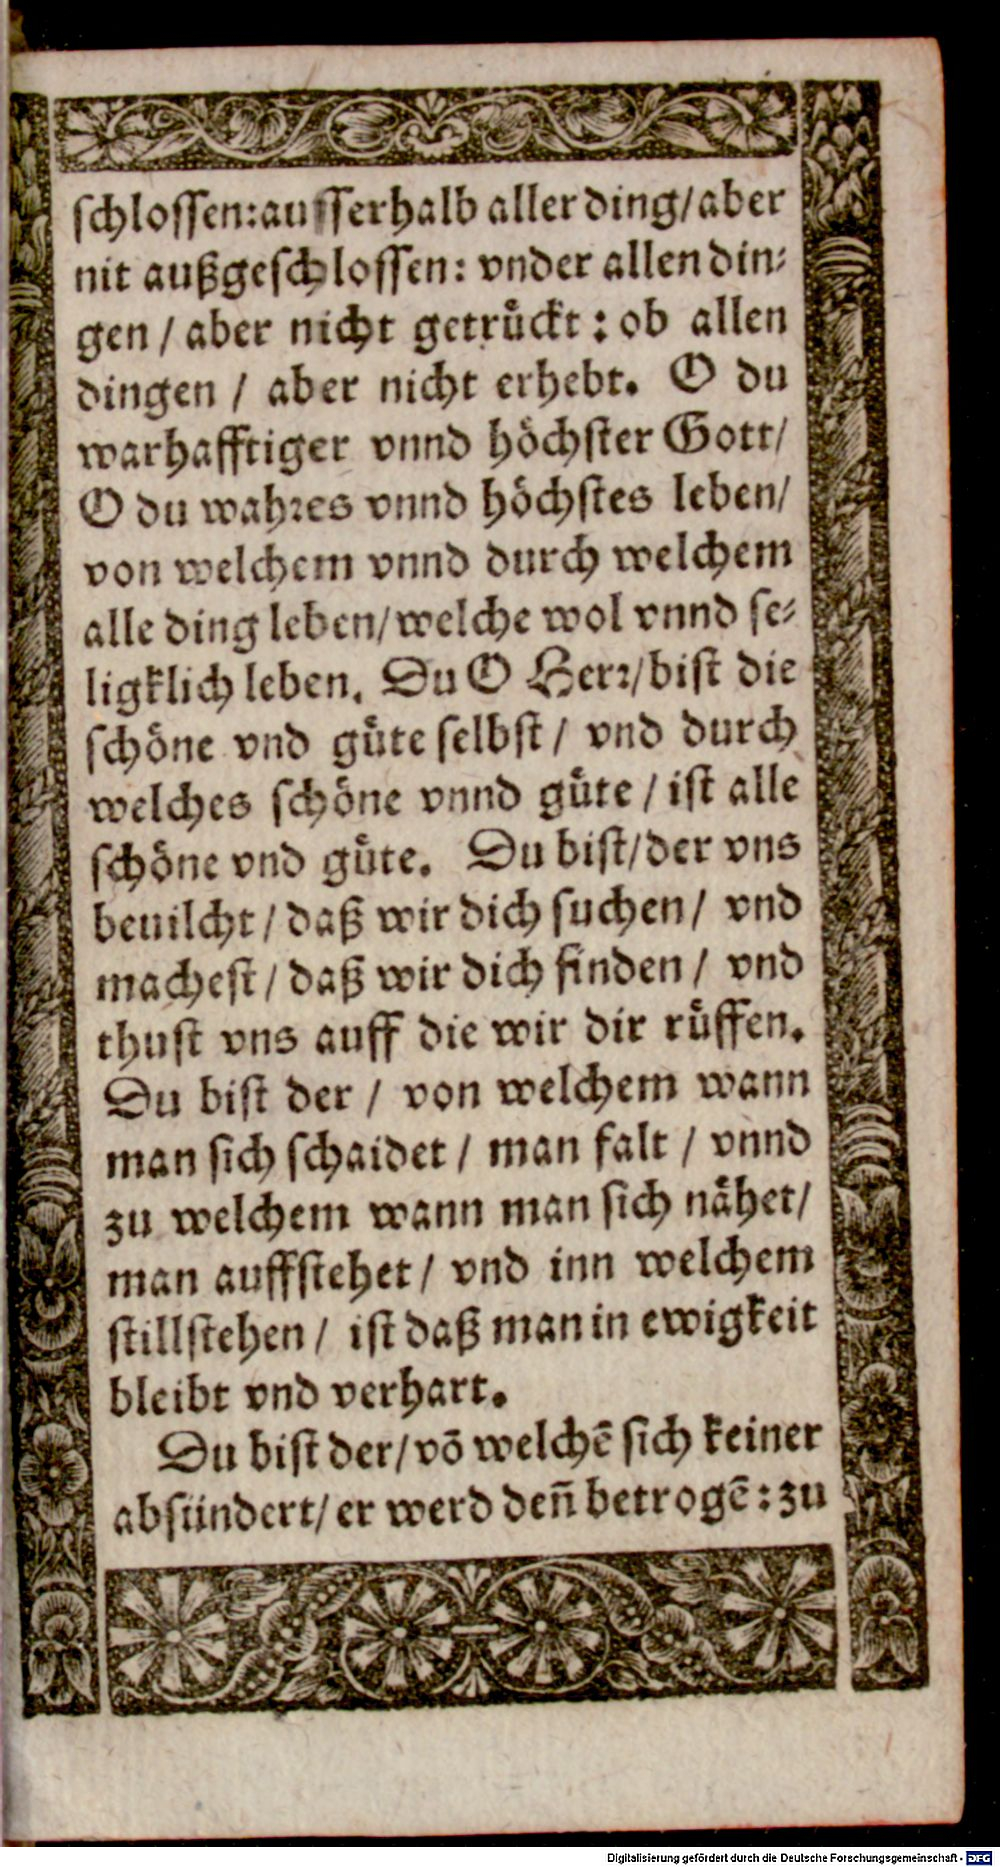 schlossen:ausserhalb aller ding/aber
nit außgeschlossen: vnder allen din-
gen / aber nicht getruͤckt : ob allen
dingen / aber nicht erhebt. O du
warhafftiger vnnd hoͤchster Gott/
O du wahꝛes vnnd hoͤchstes leben/
von welchem vnnd durch welchem
alle ding leben/welche wol vnnd se-
ligklich leben. Du O Herꝛ/bist die
schoͤne vnd guͤte selbst / vnd durch
welches schoͤne vnnd guͤte / ist alle
schoͤne vnd guͤte. Du bist/der vns
beuilcht / daß wir dich suchen / vnd
machest / daß wir dich finden / vnd
thust vns auff die wir dir ruͤffen.
Du bist der / von welchem wann
man sich schaidet / man falt / vnnd
zu welchem wann man sich naͤhet/
man auffstehet / vnd inn welchem
stillstehen / ist daß man in ewigkeit
bleibt vnd verhart.
Du bist der/võ welchẽ sich keiner
absündert/ er werd deñ betrogẽ : zu
Digitalisierung gefördert durch die Deutsche Forschungsgemeinschaft - DFG